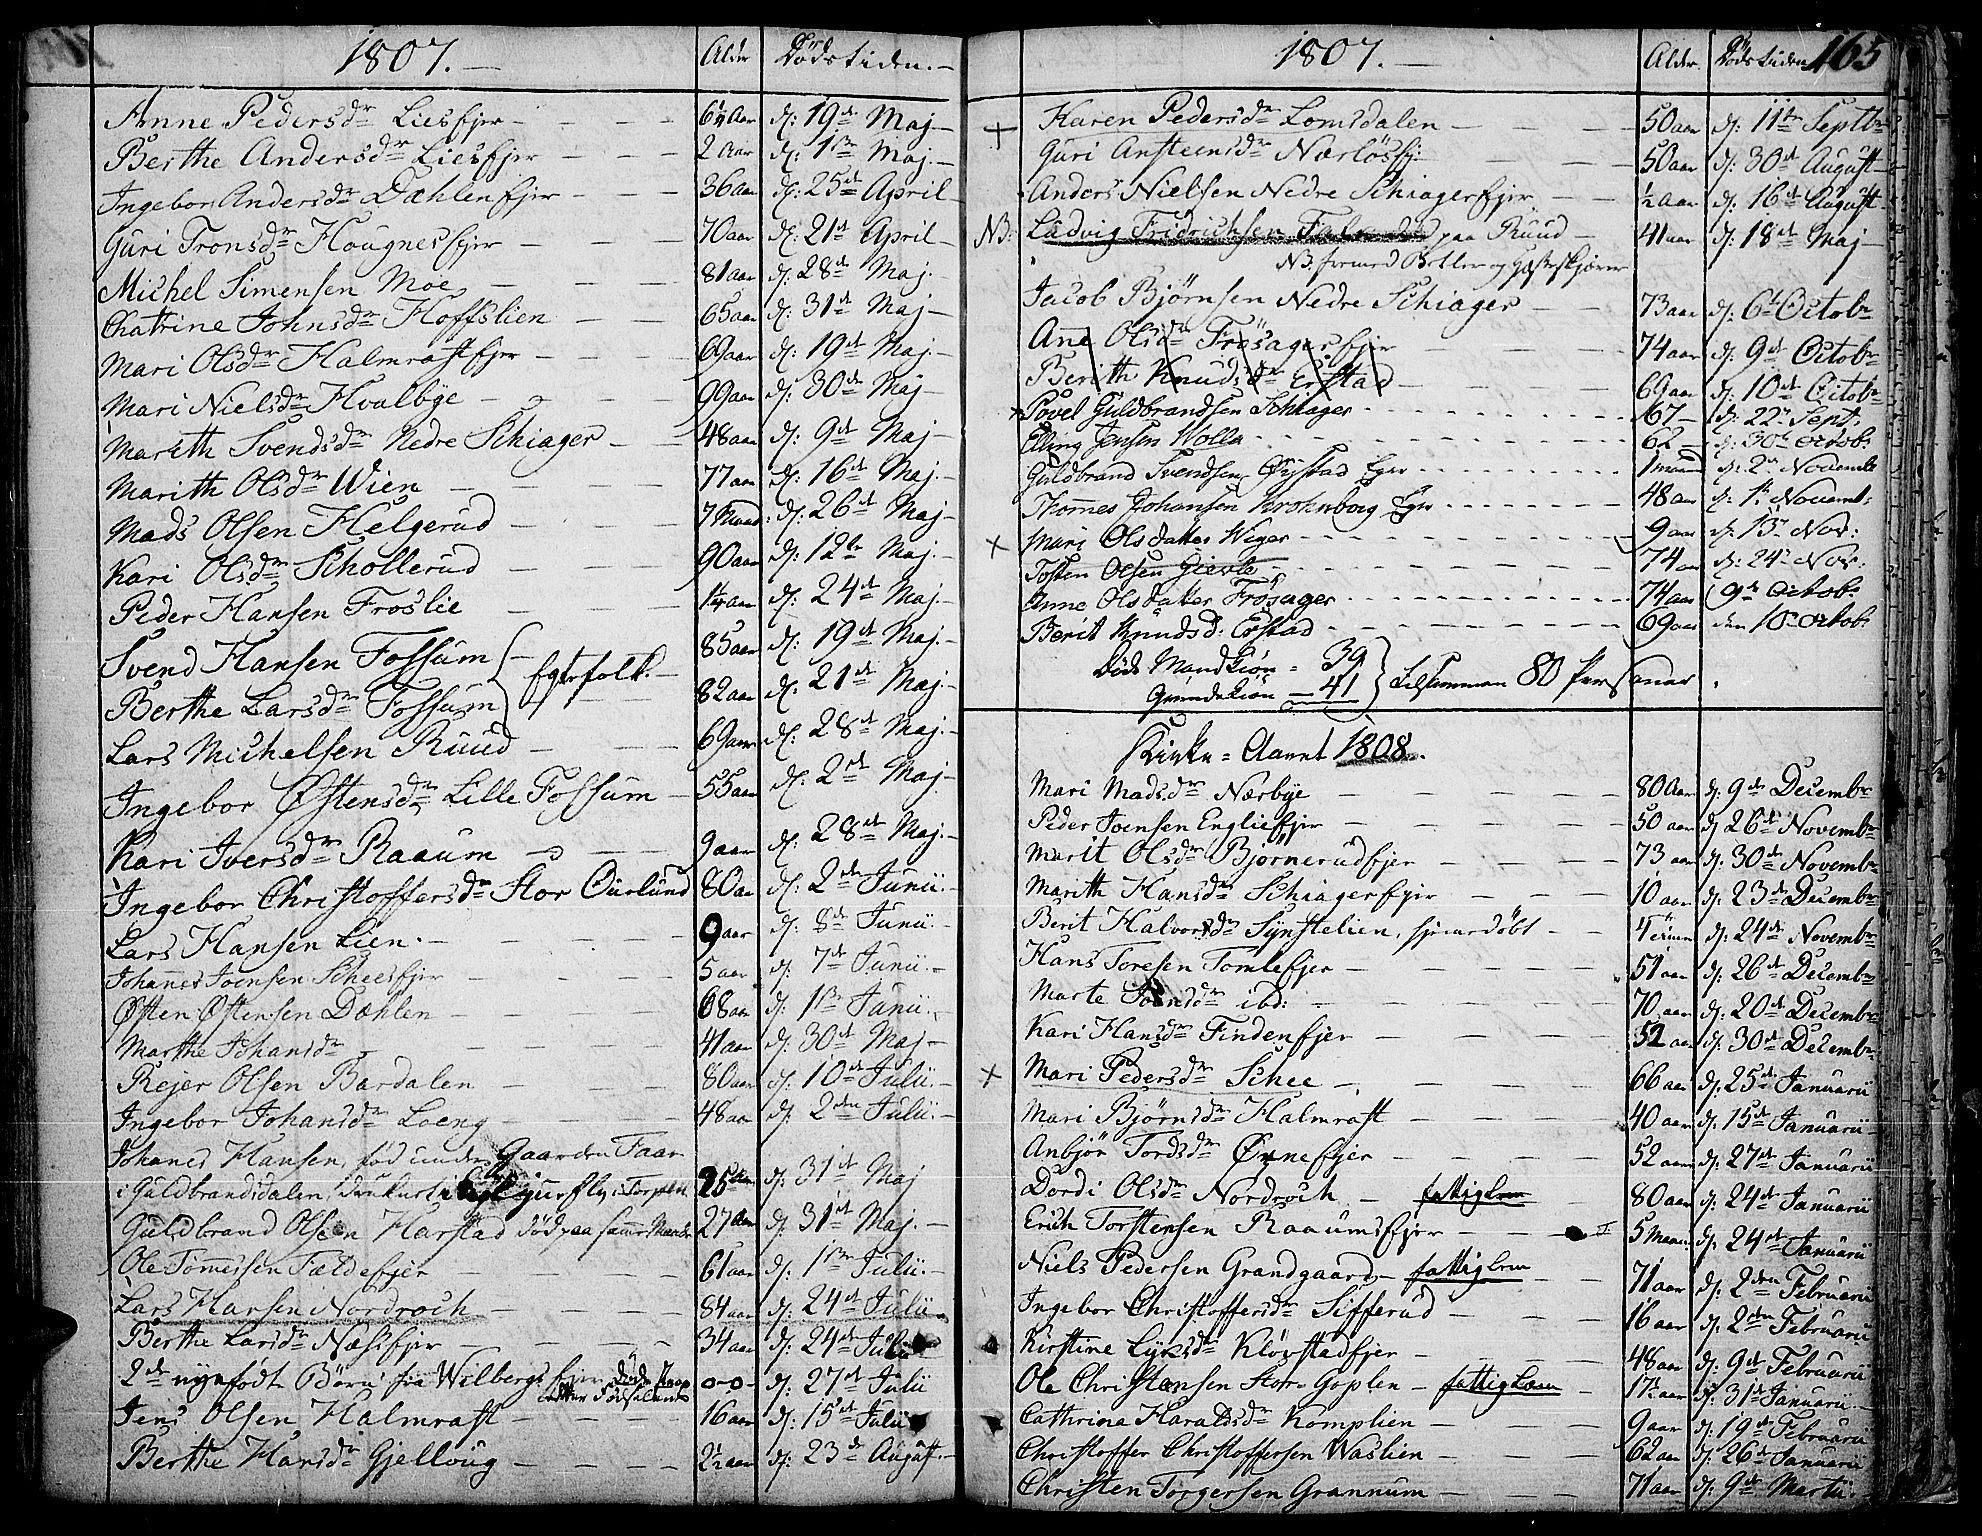 1807. — Alder Dödstiden. —
Anne Pedersdr Liesejer 6¼ aar d: 19de Maj —
Berthe Andersdr Liesejer 2 aar d: 1ste Maj. —
Ingebor Andersdr Dæhlenejer 36 aar d: 25de April —
Guri Tronsdr Hougnesejer 70 aar d: 21de April —
Michel Simensen Moe 81 aar d: 28de Maj. —
Chatrine Johnsdr Hoffslien 65 aar d: 31de Maj —
Mari Olsdr Halmrastejer 69 aar d: 19de Maj. —
Mari Nielsdr Hvalbye 99 aar d: 30de Maj —
Marith Svendsdr Nedre Schiager 48 aar d: 9de Maj —
Marith Olsdr Wien 77 aar d: 16de Maj —
Mads Olsen Helgerud 7 Maan: d: 26de Maj —
Kari Olsdr Schollerud 90 aar d: 12te Maj. —
Peder Hansen Froslie 1¼ aar d: 24de Maj. —
Svend Hansen Fossum 85 aar d: 19de Maj. —
Egtefolk. —
Berthe Larsdr Fossum 82 aar d: 21de Maj. —
Lars Michelsen Ruud 69 aar d: 28de Maj. —
Ingebor Østensdr Lille Fossum 55 aar d: 2de Maj —
Kari Iversdr Raaum 9 aar d: 28de Maj. —
Ingebor Christoffersdr Stor Ourlund 80 aar d: 2den Junii. —
Lars Hansen Lien. 9 aar d: 8de Junii. —
Johanes Joensen Scheesejer 5 aar d: 7de Junii. —
Østen Østensen Dæhlen 68 aar d: 1ste Junii. —
Marthe Johansdr 41 aar d: 30de Maj —
Rejer Olsen Bardalen 80 aar d: 10de Julii. —
Ingebor Johansdr Loeng 48 aar d: 2den Julii. —
Johanes Hansen, fød under Gaarden Faar
i Guldbrandsdalen, i Torpen 25 aar d: 31de Maj
Guldbrand Olsen Harstad død paa samme 27 aar d: 31de Maj. —
Ole Tomessen Fældeejer 61 aar d: 1ste Julii. —
Lars Hansen Nordroch 84 aar d: 24de Julii
Berthe Larsdr Næssejer 34 aar d: 24de Julii
2de nyefødt Børn fra Wilbergsejer døde strax efter Fødselen 0-0- d: 27de Julii
Jens Olsen Halmrast 16 aar d: 15de Julii
Berthe Hansdr Gjelloug 2½ aar d: 23de August. —
1807. — Alder. Dödstiden 165
+ Karen Pedersdr Lomsdalen 50 aar d: 11te Septbr
Guri Ansteensdr Nærlösej: 50 aar d: 30de August
Anders Nielsen Nedre Schiagerejer ½ aar d: 16de August
NB: Ludvig Fridrichsen paa Ruud 41 aar d: 18de Maj —
Jacob Bjørnsen Nedre Schiager 73 aar d: 6te Octobr
Ane Olsdr Frösagerejer 74 aar d: 9de Octobr
Berith Knudsdr Erstad 69 aar d: 10de Octobr
× Povel Guldbrandsen Schiager 67 — d: 22de Sept:
Elling Jensen Wolla 62 — d: 30te Octob:
Guldbrand Svendsen Øistad Eger 1 maaned d: 2de Novemb
Thomes Johansen Krohnborg Eger 48 aar d: 1te Novemb:
× Mari Olsdatter Wiger 9 aar d: 13de Nov:
Tosten Olsen Gierle 74 aar d: 24de Nov:
Anne Olsdatter Frösager 74 aar 9de Octob:
Berit Knudsd. Erstad 69 aar den 10de Octob:
Døde Mandkiøn = 39
Qvindekiøn — 41 } Tilsammen 80 Personer.
Kirke-Aaret 1808.
Mari Madsdr Nærbye 80 aar d: 9de Decembr
Peder Joensen Englieejer 50 aar d: 26de Novembr
Marit Olsdr Bjørnerudejer 73 aar d: 30de Novembr
Marith Hansdr Schiagerejer 10 aar d: 23de Decembr
Berit Halvorsdr Synstelien, hjemedöbt 4 d: 24de Novembr
Hans Toresen Tomleejer 51 aar d: 26de Decembr
Marte ibd: 70 aar d: 20de Decembr
Kari Hansdr Findenejer 52 aar d: 30de Decembr
× Mari Pedersdr Schee 66 aar d: 25de Januarii
Mari Bjørnsdr Halmrast 40 aar d: 15de Januarii
Anbjör Tordsdr Ørneejer 52 aar d: 27de Januarii
Dordi Olsdr Nordroch — fattiglem 80 aar d: 24de Januarii
Erich Torstensen Raaumsejer 5 Maan: d: 24de Januarii
Niels Pedersen Grandgaard — fattiglem 71 aar d: 2den Februarii
Ingebor Christoffersdr Sifferud 16 aar d: 2den Februarii
Kirstine Klöwstadejer 48 aar d: 9de Februarii
Ole Christensen Stor Goplen — fattiglem 17½ aar d: 31te Januarii. —
Cathrina Haraldsdr Komplien 9 aar d: 19de Februarii
Christoffer Christoffersen Waslien 62 aar d: 26de Januarii
Christen Torgersen Grannum 71 aar d: 9de Martii.